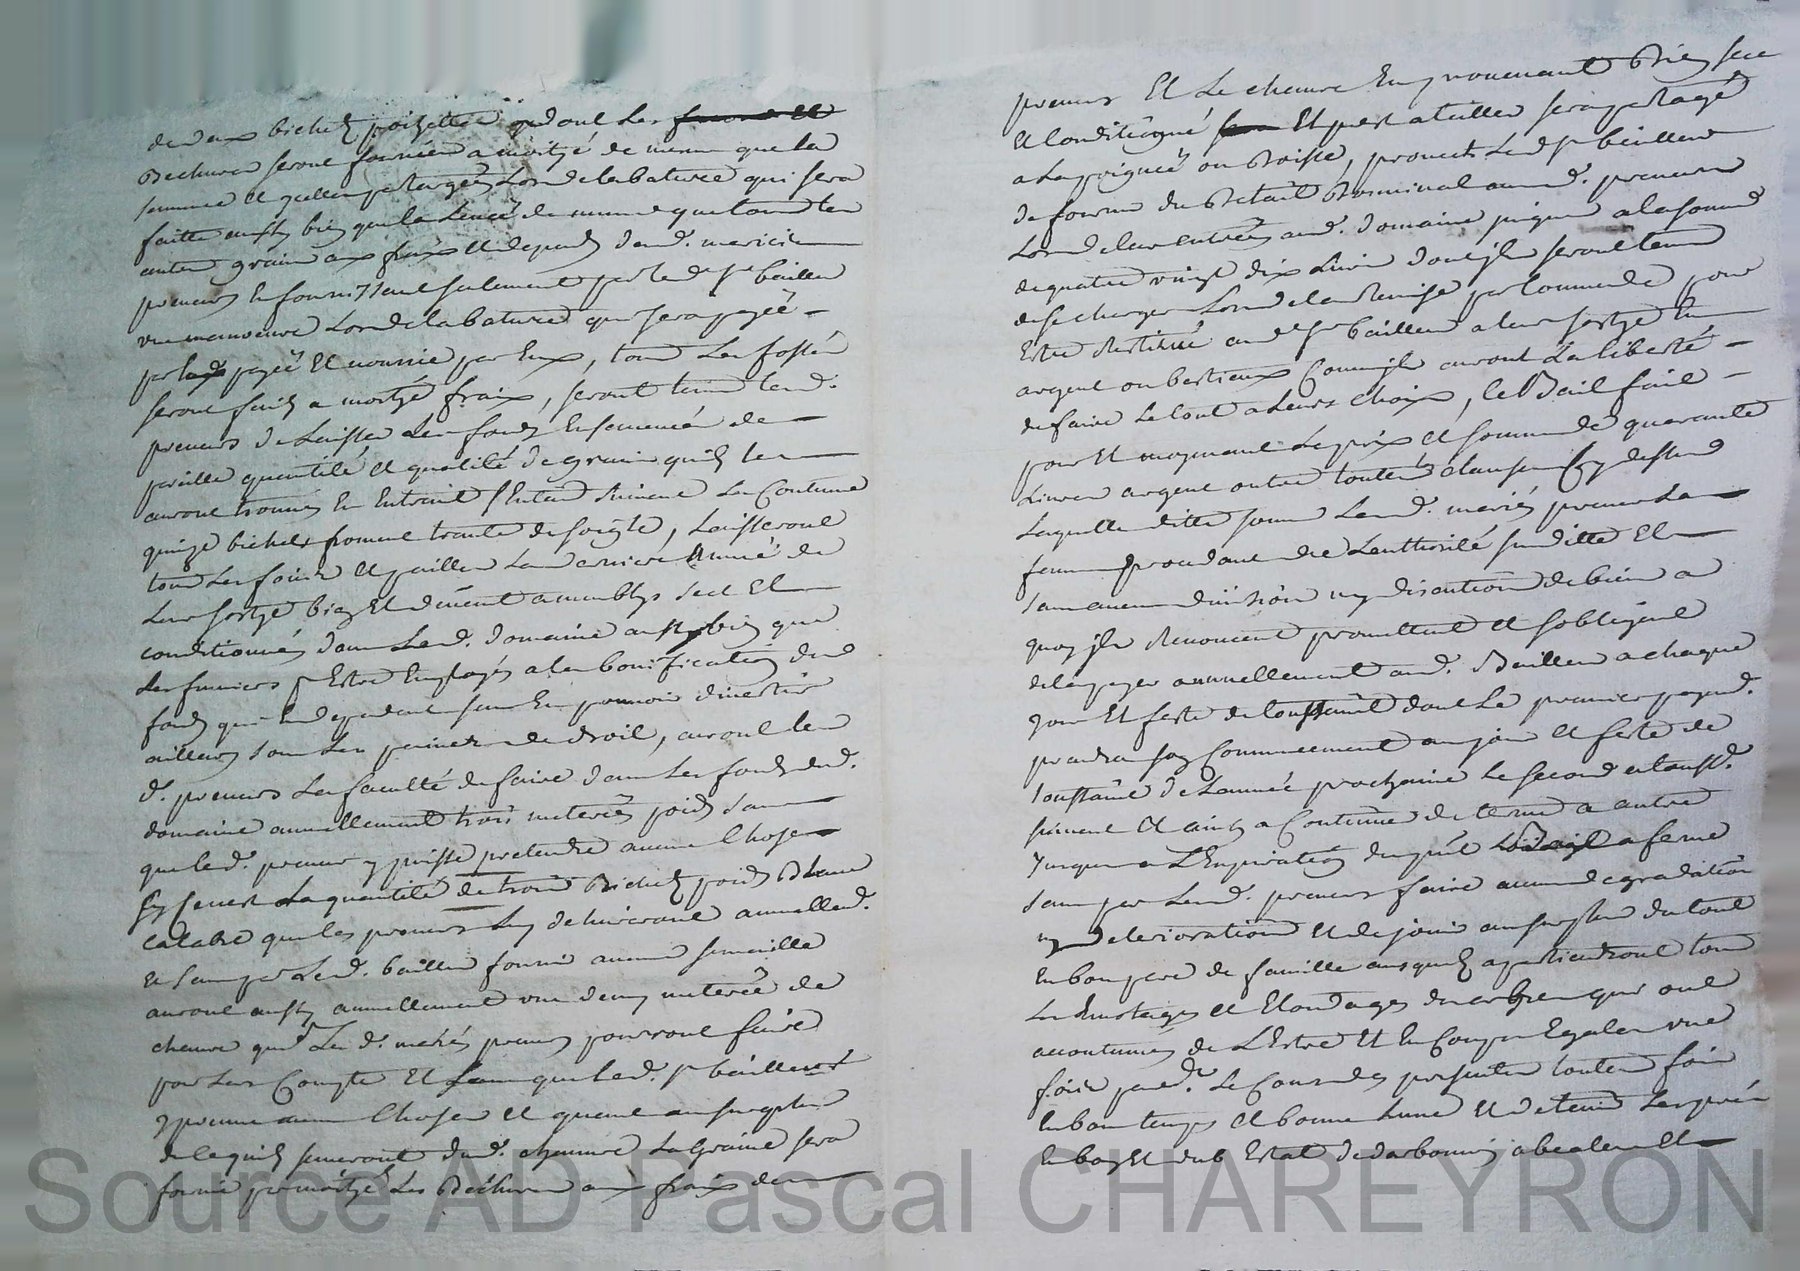 de deux bichets poizette dont les
Bechures seront fournies a moityé de mesme que la
semence et icelles partagées Lors de la bature qui sera
faitte aussy bien que la Levée de mesme que tous les
autres grains aux fraix et depends desd. mariés
preneurs en fournissant seulement par led. Sr bailleur
une manoeuvre Lors de la bature qui sera payée
par payée Et nourrie par Eux, tous Les fossés
seront faits a moityé fraix, seront tenus lesd.
preneurs de Laisser Les fonds Ensemencés de
pareille quantité et qualité de grains quils les
auront trouvés En Entrant suivant La Coutume
quinze bichets froment trente de soigle, Laisseront
tous Les foins et pailles La derniere Année de
Leur sortye bien Et duement amenblys sect Et
conditionnés dans Led. domaine aussy bien que
Les fumiers pr Estre Employés a la bonification des
fonds qui en dependent sans En pouvoir divertir
ailleurs sous Les peines de droit, auront les
d. preneurs La faculté de faire dans Les fonds dud.
domaine annuellement trois meterées poids sans
que led. preneur y puisse pretendre aucune Chose
La quantité de trois Bichets poids Blanc
que les preneurs Luy delivreront annuellemt.
Et sans que Led. bailleur fournie aucune semaille
auront aussy annuellement une demy meterée de
chenve que Les d. mariés preneurs pourront faire
pour Leur Compte Et sans que led. Sr bailleur
y prenne aucune Chose et quand au surplus
de ce quils semeront dud. chenve La Graine sera
fournie par moityé Les Bechures aux fraix des
preneurs Et Le chenve En provenant Bien sec
Et Conditionné Et prest a teiller sera partagé
a La poignée ou Boisse, promet Led. Sr bailleur
de fournir du Betail Bominal auxd. preneurs
Lors de leur entrée aud. domaine jusques a la somme
de quatre vingt dix Livres dont ils seront tenus
de se charger Lors de la Remise par Commande pour
Estre Restitué aud. Sr bailleur a leur sortye En
argent ou bestiaux Comme ils auront La liberté
de faire Le tout a Leurs Choix, le Bail fait
pour Et moyenant Le prix et somme de quarante
Livres argent outre touttes clauses Cy dessus
Laquelle ditte somme Lesd. mariés preneurs La
femme procedant de L'authorité susditte Et
sans aucune division ny discution de biens a
quoy ils Renoncent promettent et sobligent
de la payer annuellement aud. Bailleur a chaque
jour Et feste de toussaint dont Le premier payemt.
prendra son Commencement au jour et feste de
toussaint de L'année prochaine Le second a la touss.
suivant et ainsy a Continuer de terme a autre
jusques a L'Expiration du pnt Bail a ferme
sans par Lesd. preneurs faire aucune degradation
ny deterioration Et de jouir au surplus du tout
En bon pere de famille auxquels apartiendront tous
Les Emotages et Elondages des arbres qui ont
accoutumés de L'Estre Et En Coupes Egales une
fois pendt. Le Cours des presentes touttes fois
En bon temps et bonne Lune Et de tenir Les prés
En bon Et dub Estat de darbonnier abealer Et
Source AD Pascal CHAREYRON